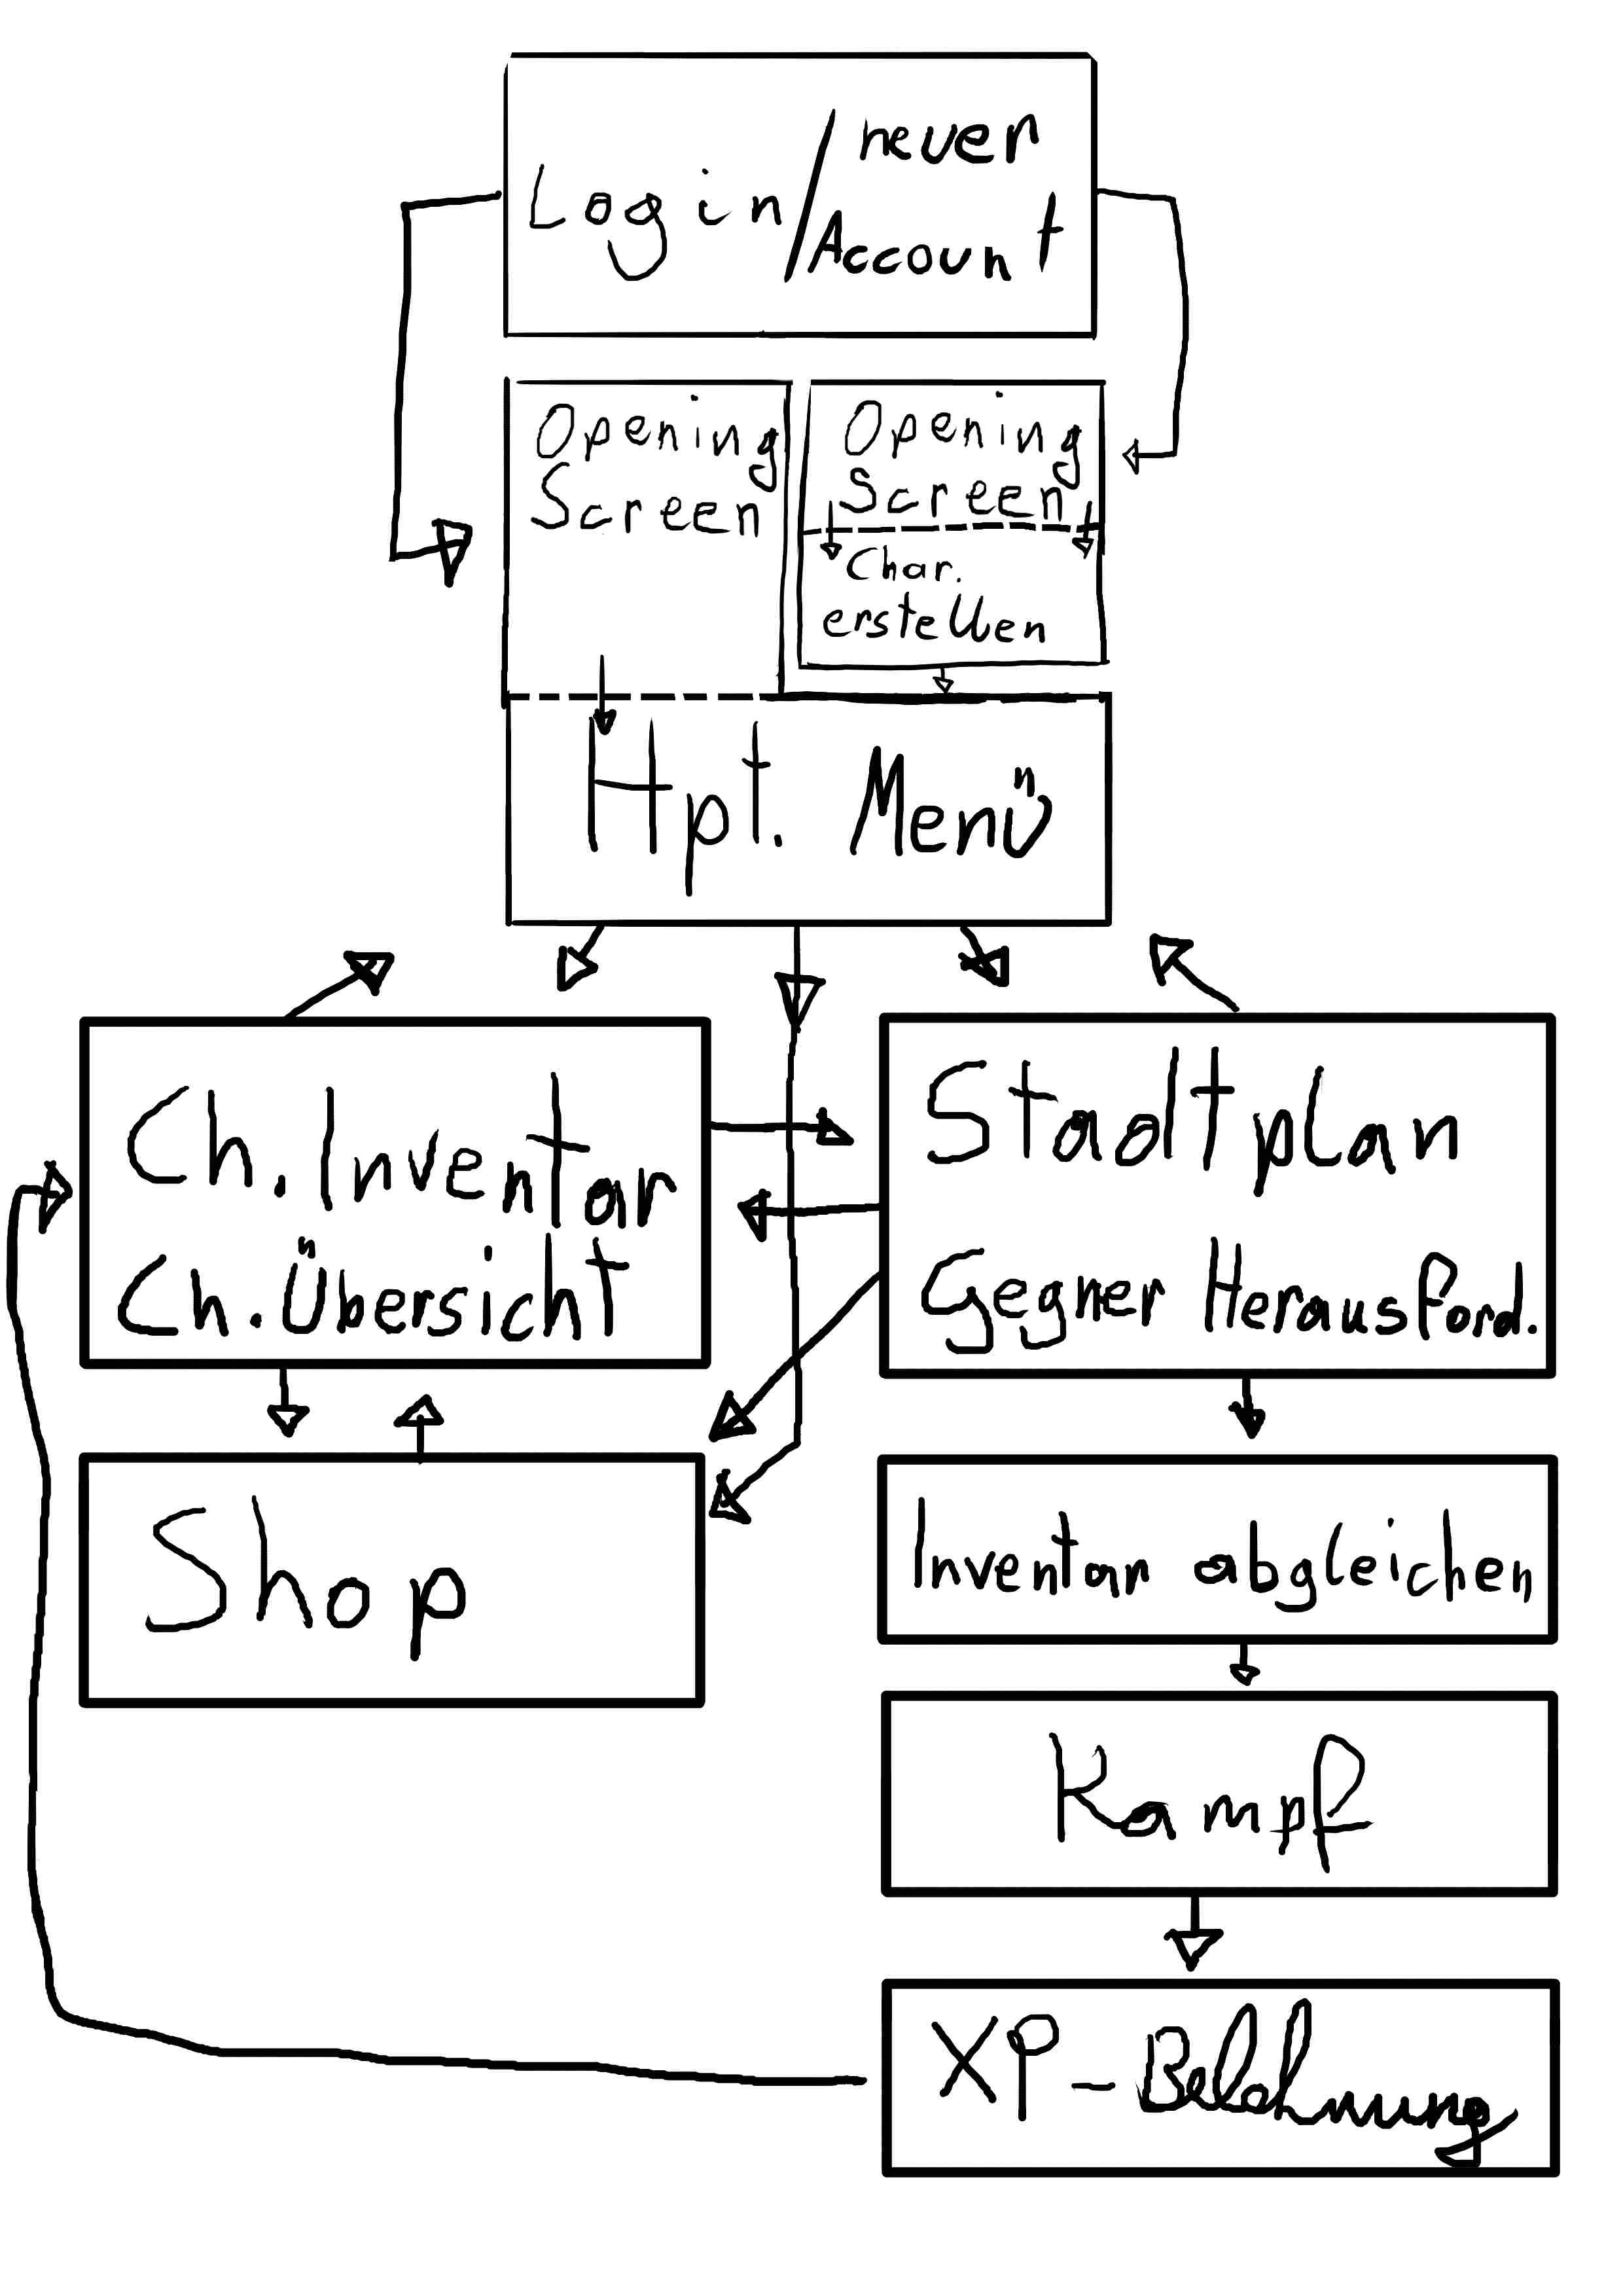 Login/neuer
Account
Opening
Screen
Opening
Screen
Char.
erstellen
Hpt. Menü
Ch. Inventar
Ch. Übersicht
Stadtplan
Gegner Herausford.
Shop
Inventar abgleichen
Kampf
XP-Belohnung